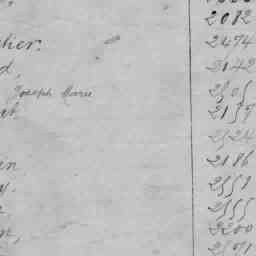 2082
lier. 2474
d, 2142
Joseph Marie 2505
2159
2524
in 2186
y. 2559
2555
n, 2200
2591